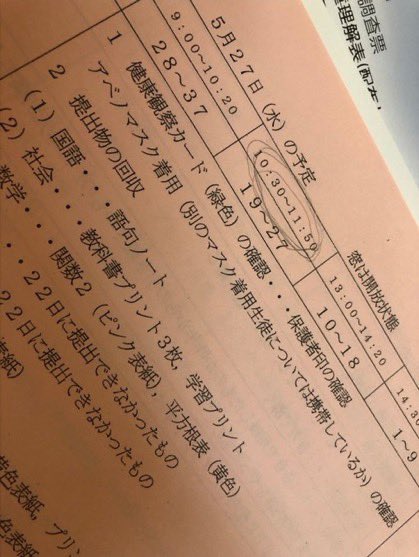 調査票
理解表(配布
窓は開放状態
5月27日（水）の予定
9:00〜10:20
10:30〜11:50
13:00〜14:20
14:
28〜37
19〜27
10〜18
1〜9
1 健康観察カード（緑色）の確認・・・保護者印の確認
アベノマスク着用（別のマスク着用生徒については携帯しているか）の確認
2 提出物の回収
（1）国語・・・語句ノート
（2）社会・・・教科書プリント3枚，学習プリント
数学・・・関数2（ピンク表紙），平方根表（黄色）
22日に提出できなかったもの
22日に提出できなかったもの
表紙）
色表紙，プリン
色表紙